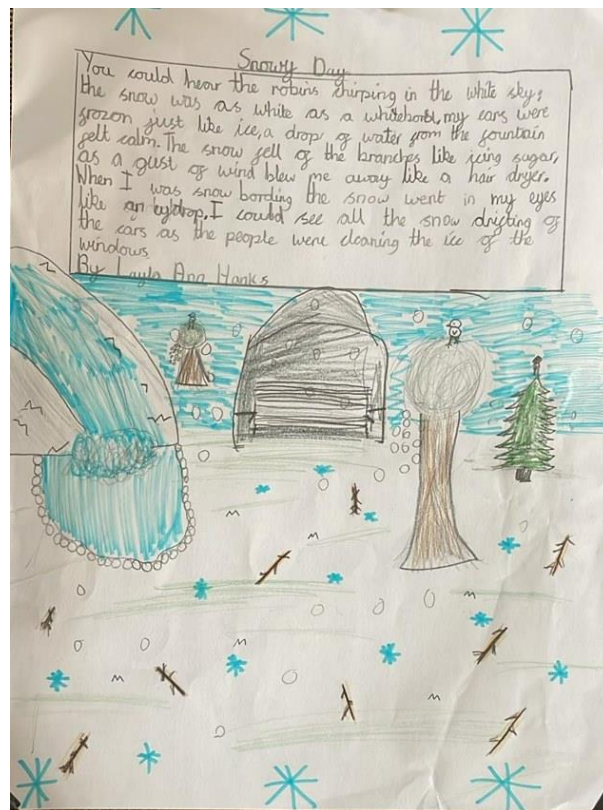 Snowy Day
You could hear the robins chirping in the white sky,
the snow was as white as a whitebord, my ears were
frozon just like ice, a drop of water from the fountain
felt calm. The snow fell of the branches like icing sugar,
as a gust of wind blew me away like a hair dryer.
When I was snow bording the snow went in my eyes
like an eydrop. I could see all the snow drifting of
the cars as the people were cleaning the ice of the
windows
By Layla Ann Hanks